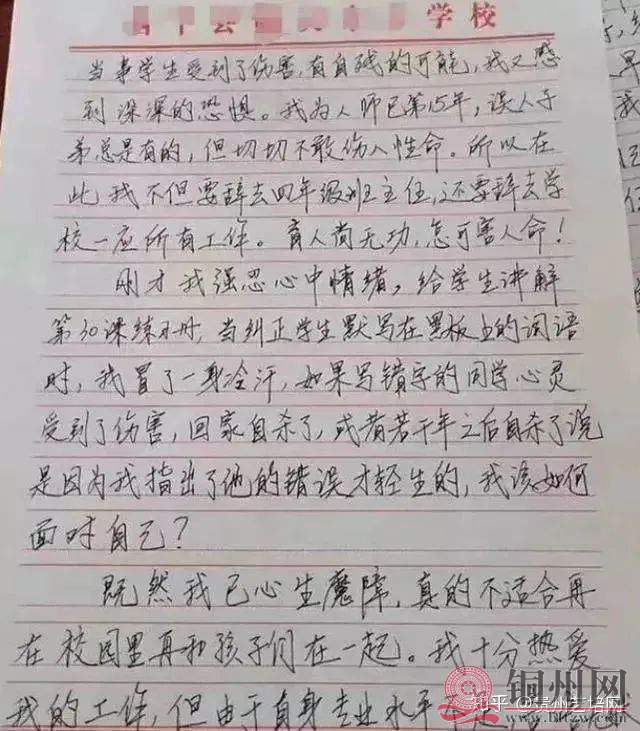 学校
当事学生受到了伤害,有自残的可能,我又感
到深深的恐惧。我为人师已第15年,误人子
弟总是有的,但切切不敢伤人性命。所以在
此我不但要辞去四年级班主任,还要辞去学
校一应所有工作。育人尚无功,怎可害人命!
刚才我强忍心中情绪,给学生讲解
第30课练习册,当纠正学生默写在黑板上的词语
时,我冒了一身冷汗,如果写错字的同学心灵
受到了伤害,回家自杀了,或者若干年之后自杀了说
是因为我指出了他的错误才轻生的,我该如何
面对自己?
既然我已心生魔障,真的不适合再
在校园里再和孩子们在一起。我十分热爱
我的工作,但由于自身专业水平
知乎
铜州网